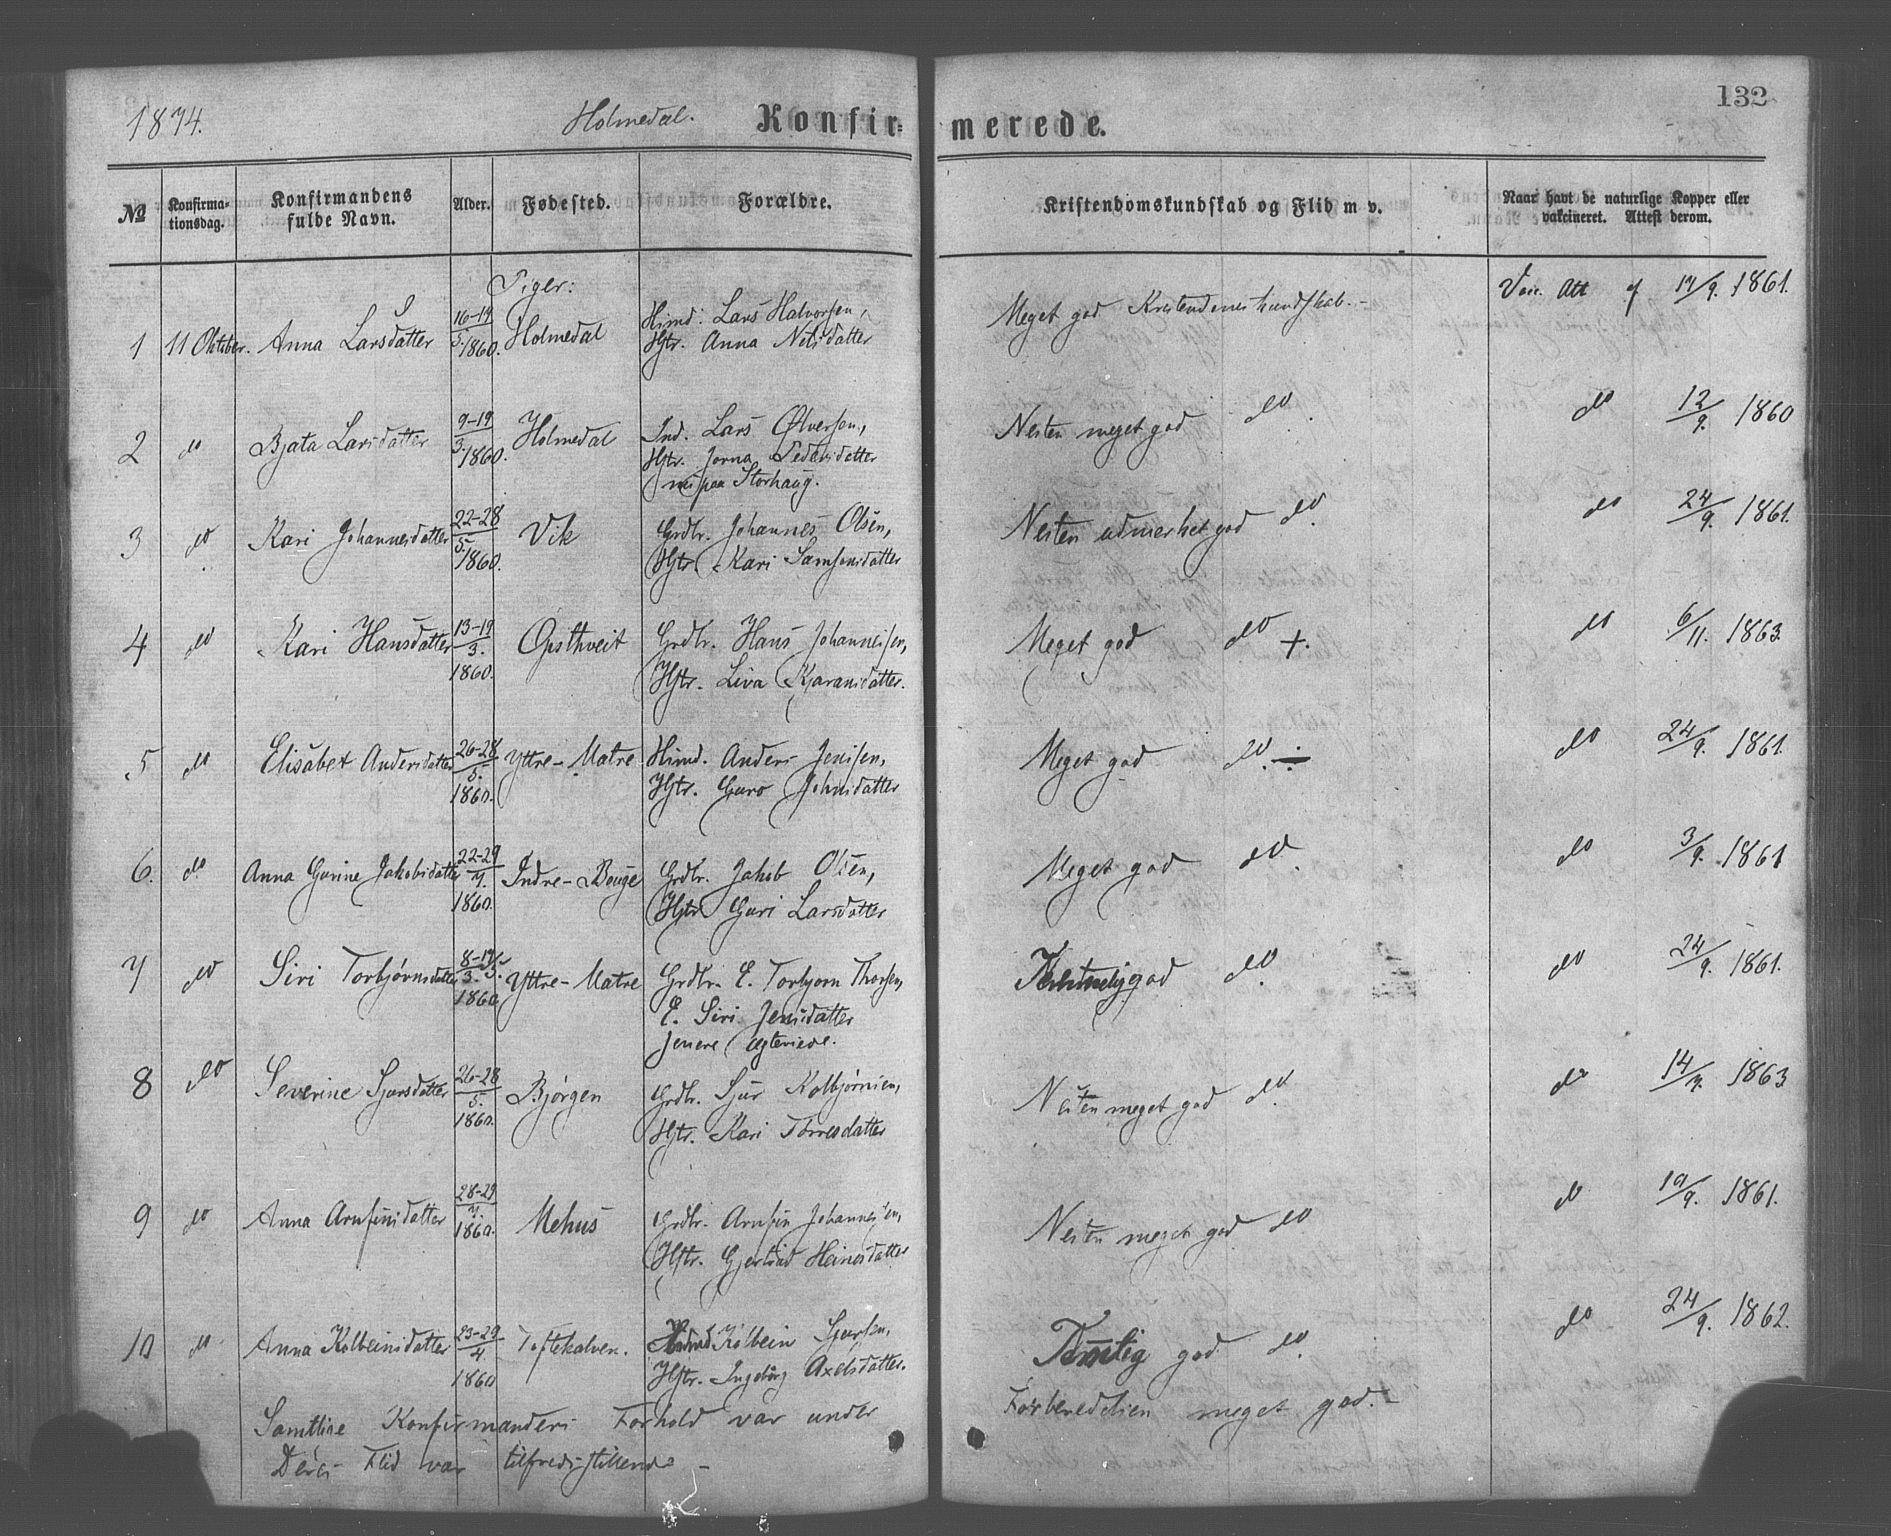 1874. Holmedal. Konfir-
merede. 132
No Konfirma-
tionsdag. Konfirmandens
fulde Navn. Alder. Fødested. Forældre.
Kristendomskundskab og Flid m v. Naar havt de naturlige Kopper eller
vakcineret. Attest derom.
Piger:
1 11 Oktober. Anna Larsdatter 16-19/5. 1860. Holmedal
Husmd. Lars Halvorsen,
Hstr. Anna Nilsdatter
Meget god Kristendomskundskab. - Vac. Att af 17/9. 1861.
2 do Bjata Larsdatter 9-19/3. 1860. Holmedal
Ind. Lars Ølversen,
Hstr. Jorna Pedersdatter
nu paa Storhaug.
Nesten meget god do. do 12/9. 1860
3 do Kari Johannesdatter 22-28/5. 1860. Vik
Grdbr. Johannes Olsen,
Hstr. Kari Samsonsdatter
Nesten udmerket god do. do 24/9. 1861.
4 do Kari Hansdatter 13-19/3. 1860. Opsthveit
Grdbr. Hans Johannessen,
Hstr. Liva Kjaransdatter.
Meget god do +. do 6/11. 1863
5 do Elisabet Andersdatter 26-28/5. 1860. Yttre-Matre
Husmd. Anders Jensen,
Hstr. Guro Johnsdatter
Meget god do. ÷ do 24/9. 1861.
6. do. Anna Gurine Jakobsdatter 22-29/7. 1860. Indre-Bouge
Grdbr. Jakob Olsen,
Hstr. Guri Larsdatter
Meget god do. do 3/9. 1861
7 do Siri Torbjørnsdatter 8-19/3. 5. 1860 Yttre-Matre
Grdbr. E. Torbjørn Thorsen,
E. Siri Jensdatter
senere ægteviede.
god do. do 24/9. 1861.
8 do Severine Sjursdatter 26-28/5. 1860. Bjørgen
Grdbr. Sjur Kolbjørnsen,
Hstr. Kari Torresdatter
Nesten meget god do. do 14/7. 1863
9 do Anna Arnfinsdatter 28-29/7. 1860. Mehus
Grdbr. Arnfin Johannessen,
Hstr. Gjertrud Heinesdatter
Nesten meget god do do 19/9. 1861.
10 do Anna Kolbeinsdatter 23-29/4 1860 Toftekalven.
Kolbein Sjursen,
Hstr. Ingebørg Axelsdatter.
Temelig god do. do 24/9. 1862.
Samtlige Konfirmanders Forhold var under Forberedelsen meget god. -
Deres Flid var tilfredsstillende -